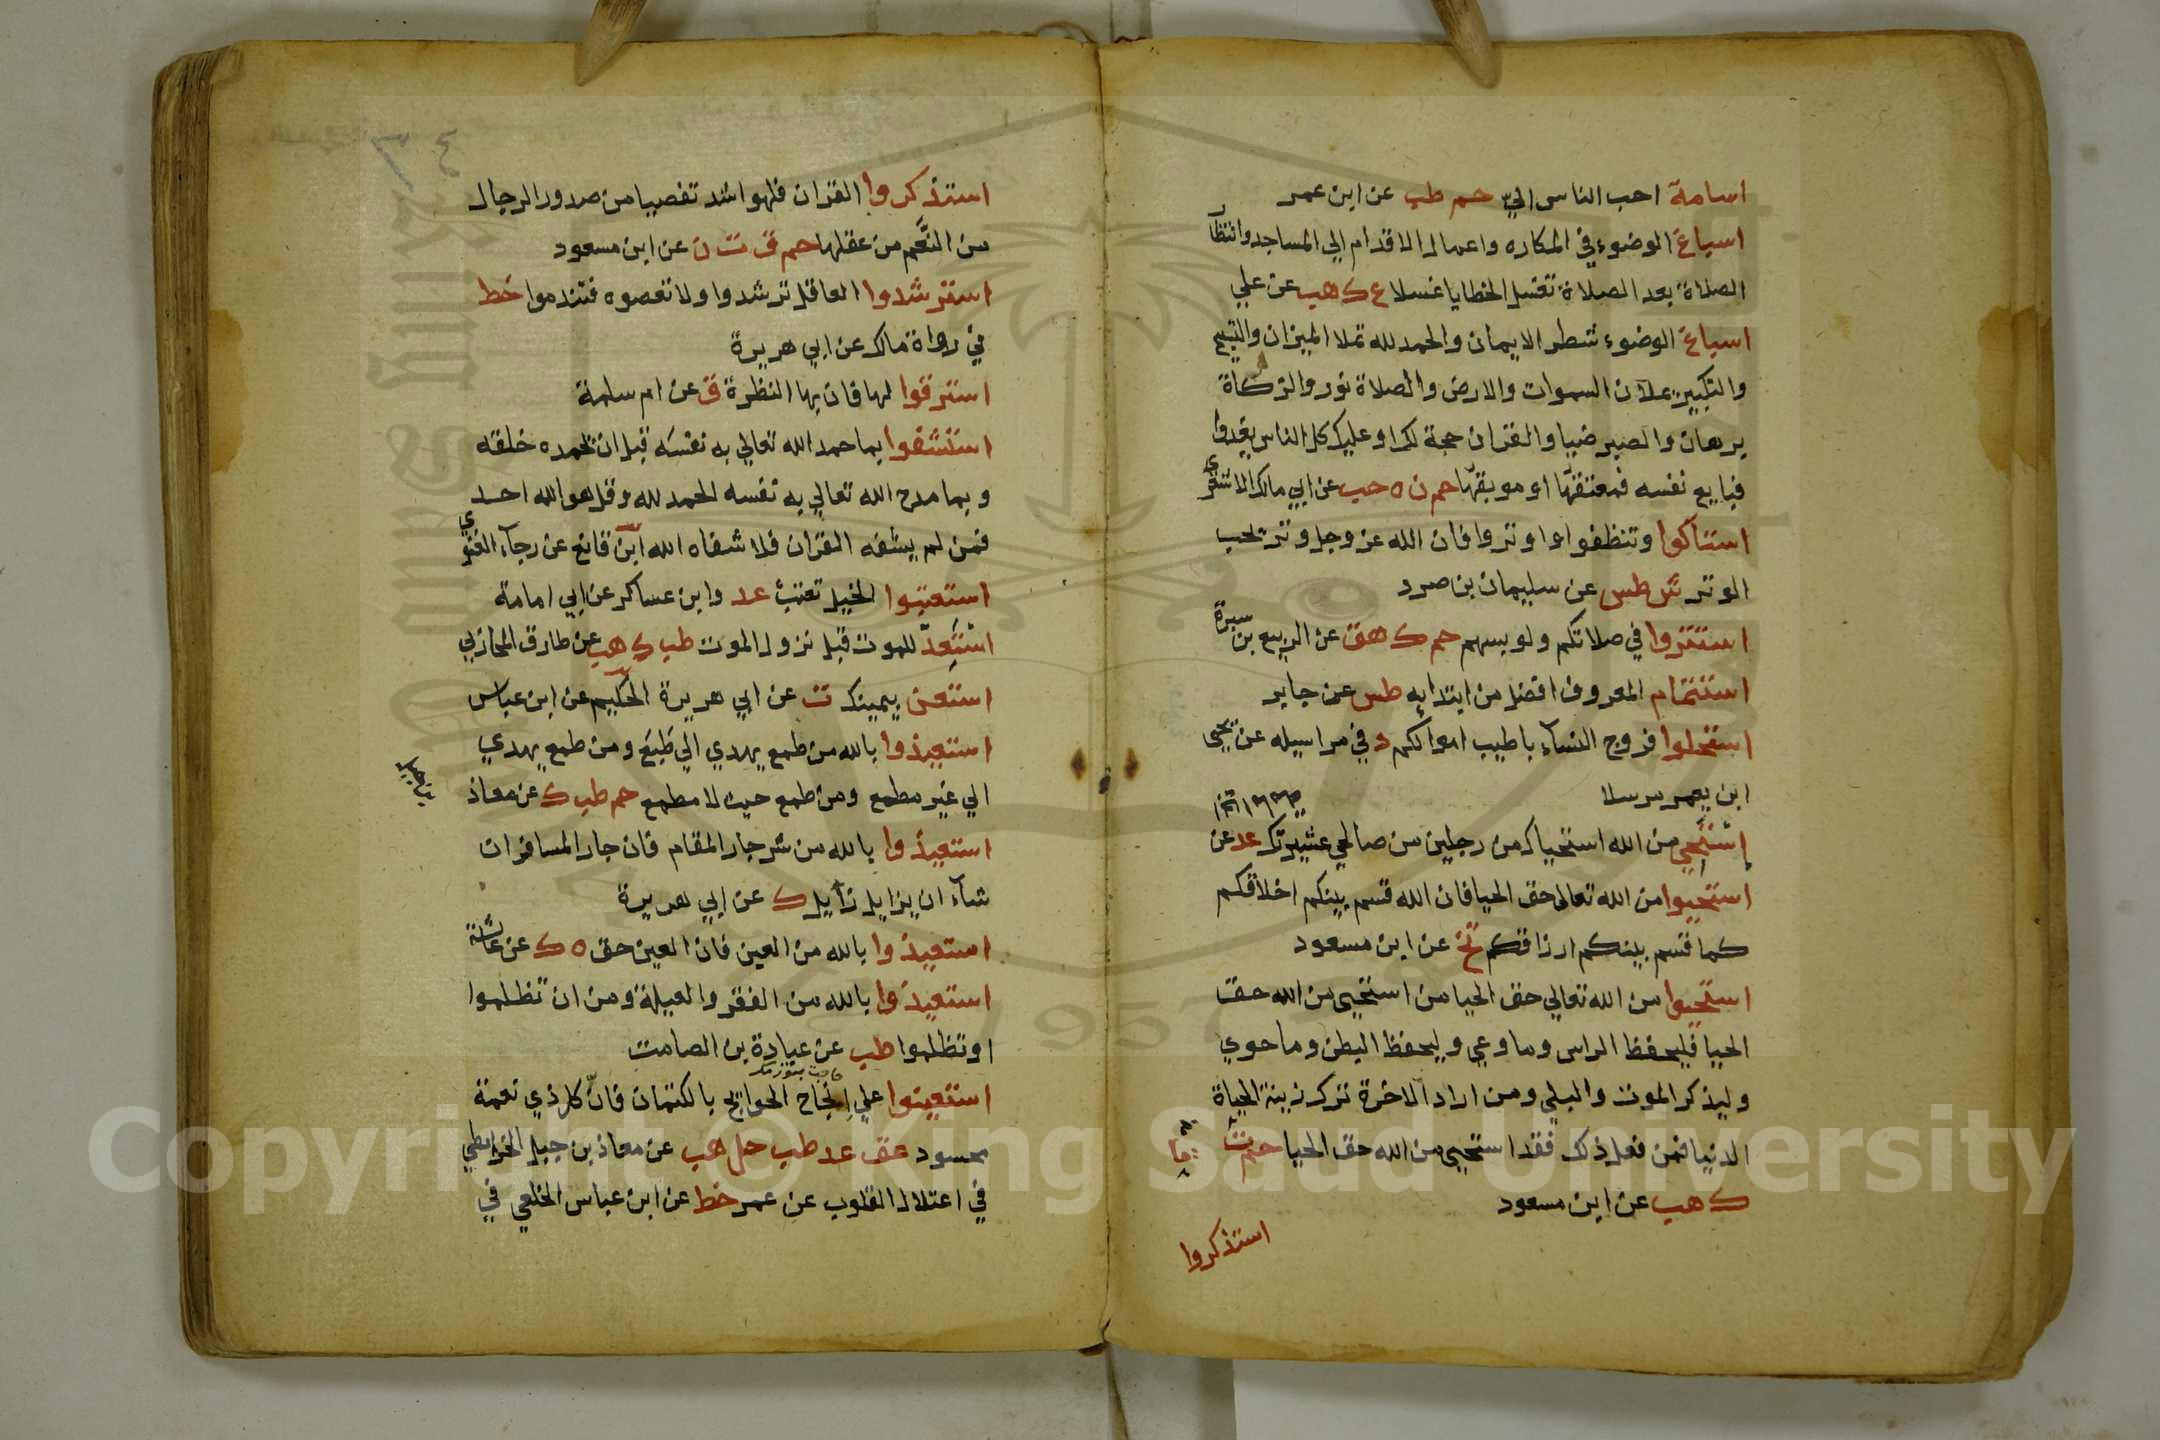 اسامة احب الناس الي حم طب عن ابن عمر
اسباغ الوضوء في المكاره واعمال الاقدام الي المساجد وانتظار
الصلاة بعد الصلاة تغسل الخطايا غسلا ع ك هب عن علي
اسباغ الوضوء شطر الايمان والحمد لله تملا الميزان والتسبيح
والتكبير يملآن السموات والارض والصلاة نور والزكاة
برهان والصبر ضيا والقران حجة لك او عليك كل الناس يغدوا
فبايع نفسه فمعتقها او موبقها حم ن ه حب عن ابي مالك الاشعري
استاكوا وتنظفوا واوتروا فان الله عز وجل وتر يحب
الوتر ش طس عن سليمان بن صرد
استتروا في صلاتكم ولو بسهم حم ك هق عن الربيع بن سبرة
استتمام المعروف افضل من ابتدايه طس عن جابر
استحلوا فروج النساء باطيب اموالكم د في مراسيله عن يحيى
ابن يعمر مرسلا
استحي من الله استحياك من رجلين من صالحي عشيرتك عد عن
استحيوا من الله تعالى حق الحيا فان الله قسم بينكم اخلاقكم
كما قسم بينكم ارزاقكم تخ عن ابن مسعود
استحيوا من الله تعالي حق الحيا من استحيى من الله حق
الحيا فليحفظ الراس وما وعي وليحفظ البطن وما حوي
وليذكر الموت والبلي ومن اراد الاخرة ترك زينة الحياة
الدنيا فمن فعل ذلك فقد استحيى من الله حق الحيا حم ت
ك هب عن ابن مسعود
استذكروا
استذكروا القران فلهو اشد تفصيا من صدور الرجال
من النعم من عقلها حم ق ت ن عن ابن مسعود
استرشدوا العاقل ترشدوا ولا تعصوه فتندموا خط
في رواة مالك عن ابي هريرة
استرقوا لها فان بها النظرة ق عن ام سلمة
استشفوا بما حمد الله تعالي به نفسه قبل ان يحمده خلقه
وبما مدح الله تعالي به نفسه الحمد لله وقل هو الله احد
فمن لم يشفه القران فلا شفاه الله ابن قانع عن رجاء الغنوي
استعتبوا الخيل تعتب عد وابن عساكر عن ابي امامة
استعد للموت قبل نزول الموت طب ك هب عن طارق المحاربي
استعن بيمينك ت عن ابي هريرة الحكيم عن ابن عباس
استعيذوا بالله من طمع يهدي الي طبع ومن طمع يهدي
الي غير مطمع ومن طمع حيث لا مطمع حم طب ك عن معاذ
بن جبل
استعيذوا بالله من شر جار المقام فان جار المسافر ان
شاء ان يزايل زايل ك عن ابي هريرة
استعيذوا بالله من العين فان العين حق ه ك عن عائشة
استعيذوا بالله من الفقر والعيلة ومن ان تظلموا
او تظلموا طب عن عبادة بن الصامت
استعينوا علي انجاح الحوائج بالكتمان فان كل ذي نعمة
محسود عق عد طب حل هب عن معاذ بن جبل الخرايطي
في اعتلال القلوب عن عمر خط عن ابن عباس الخلعي في
Copyright © King Saud University